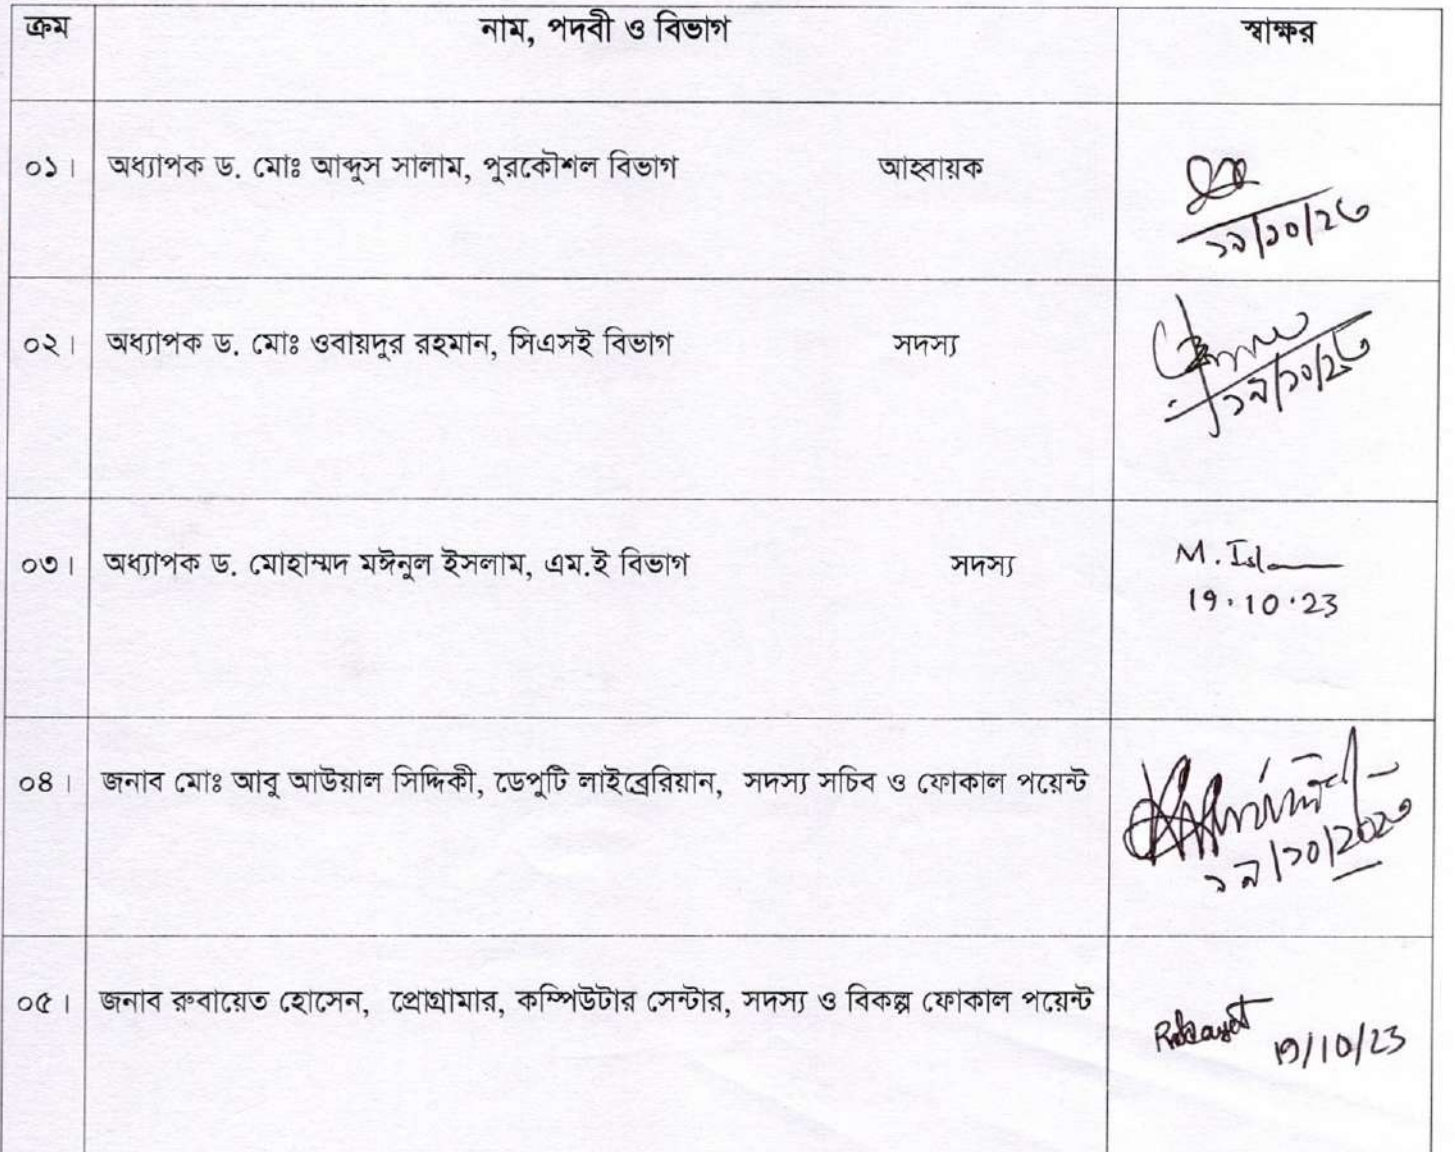 ক্রম নাম, পদবী ও বিভাগ স্বাক্ষর
০১। অধ্যাপক ড. মোঃ আব্দুস সালাম, পুরকৌশল বিভাগ আহবায়ক
১৯/১০/২৩
০২। অধ্যাপক ড. মোঃ ওবায়দুর রহমান, সিএসই বিভাগ সদস্য
১৯/১০/২৩
০৩। অধ্যাপক ড. মোহাম্মদ মঈনুল ইসলাম, এম.ই বিভাগ সদস্য M. Isl
19.10.23
০৪। জনাব মোঃ আবু আউয়াল সিদ্দিকী, ডেপুটি লাইব্রেরিয়ান, সদস্য সচিব ও ফোকাল পয়েন্ট
১৯/১০/২০২৩
০৫। জনাব রুবায়েত হোসেন, প্রোগ্রামার, কম্পিউটার সেন্টার, সদস্য ও বিকল্প ফোকাল পয়েন্ট
19/10/23